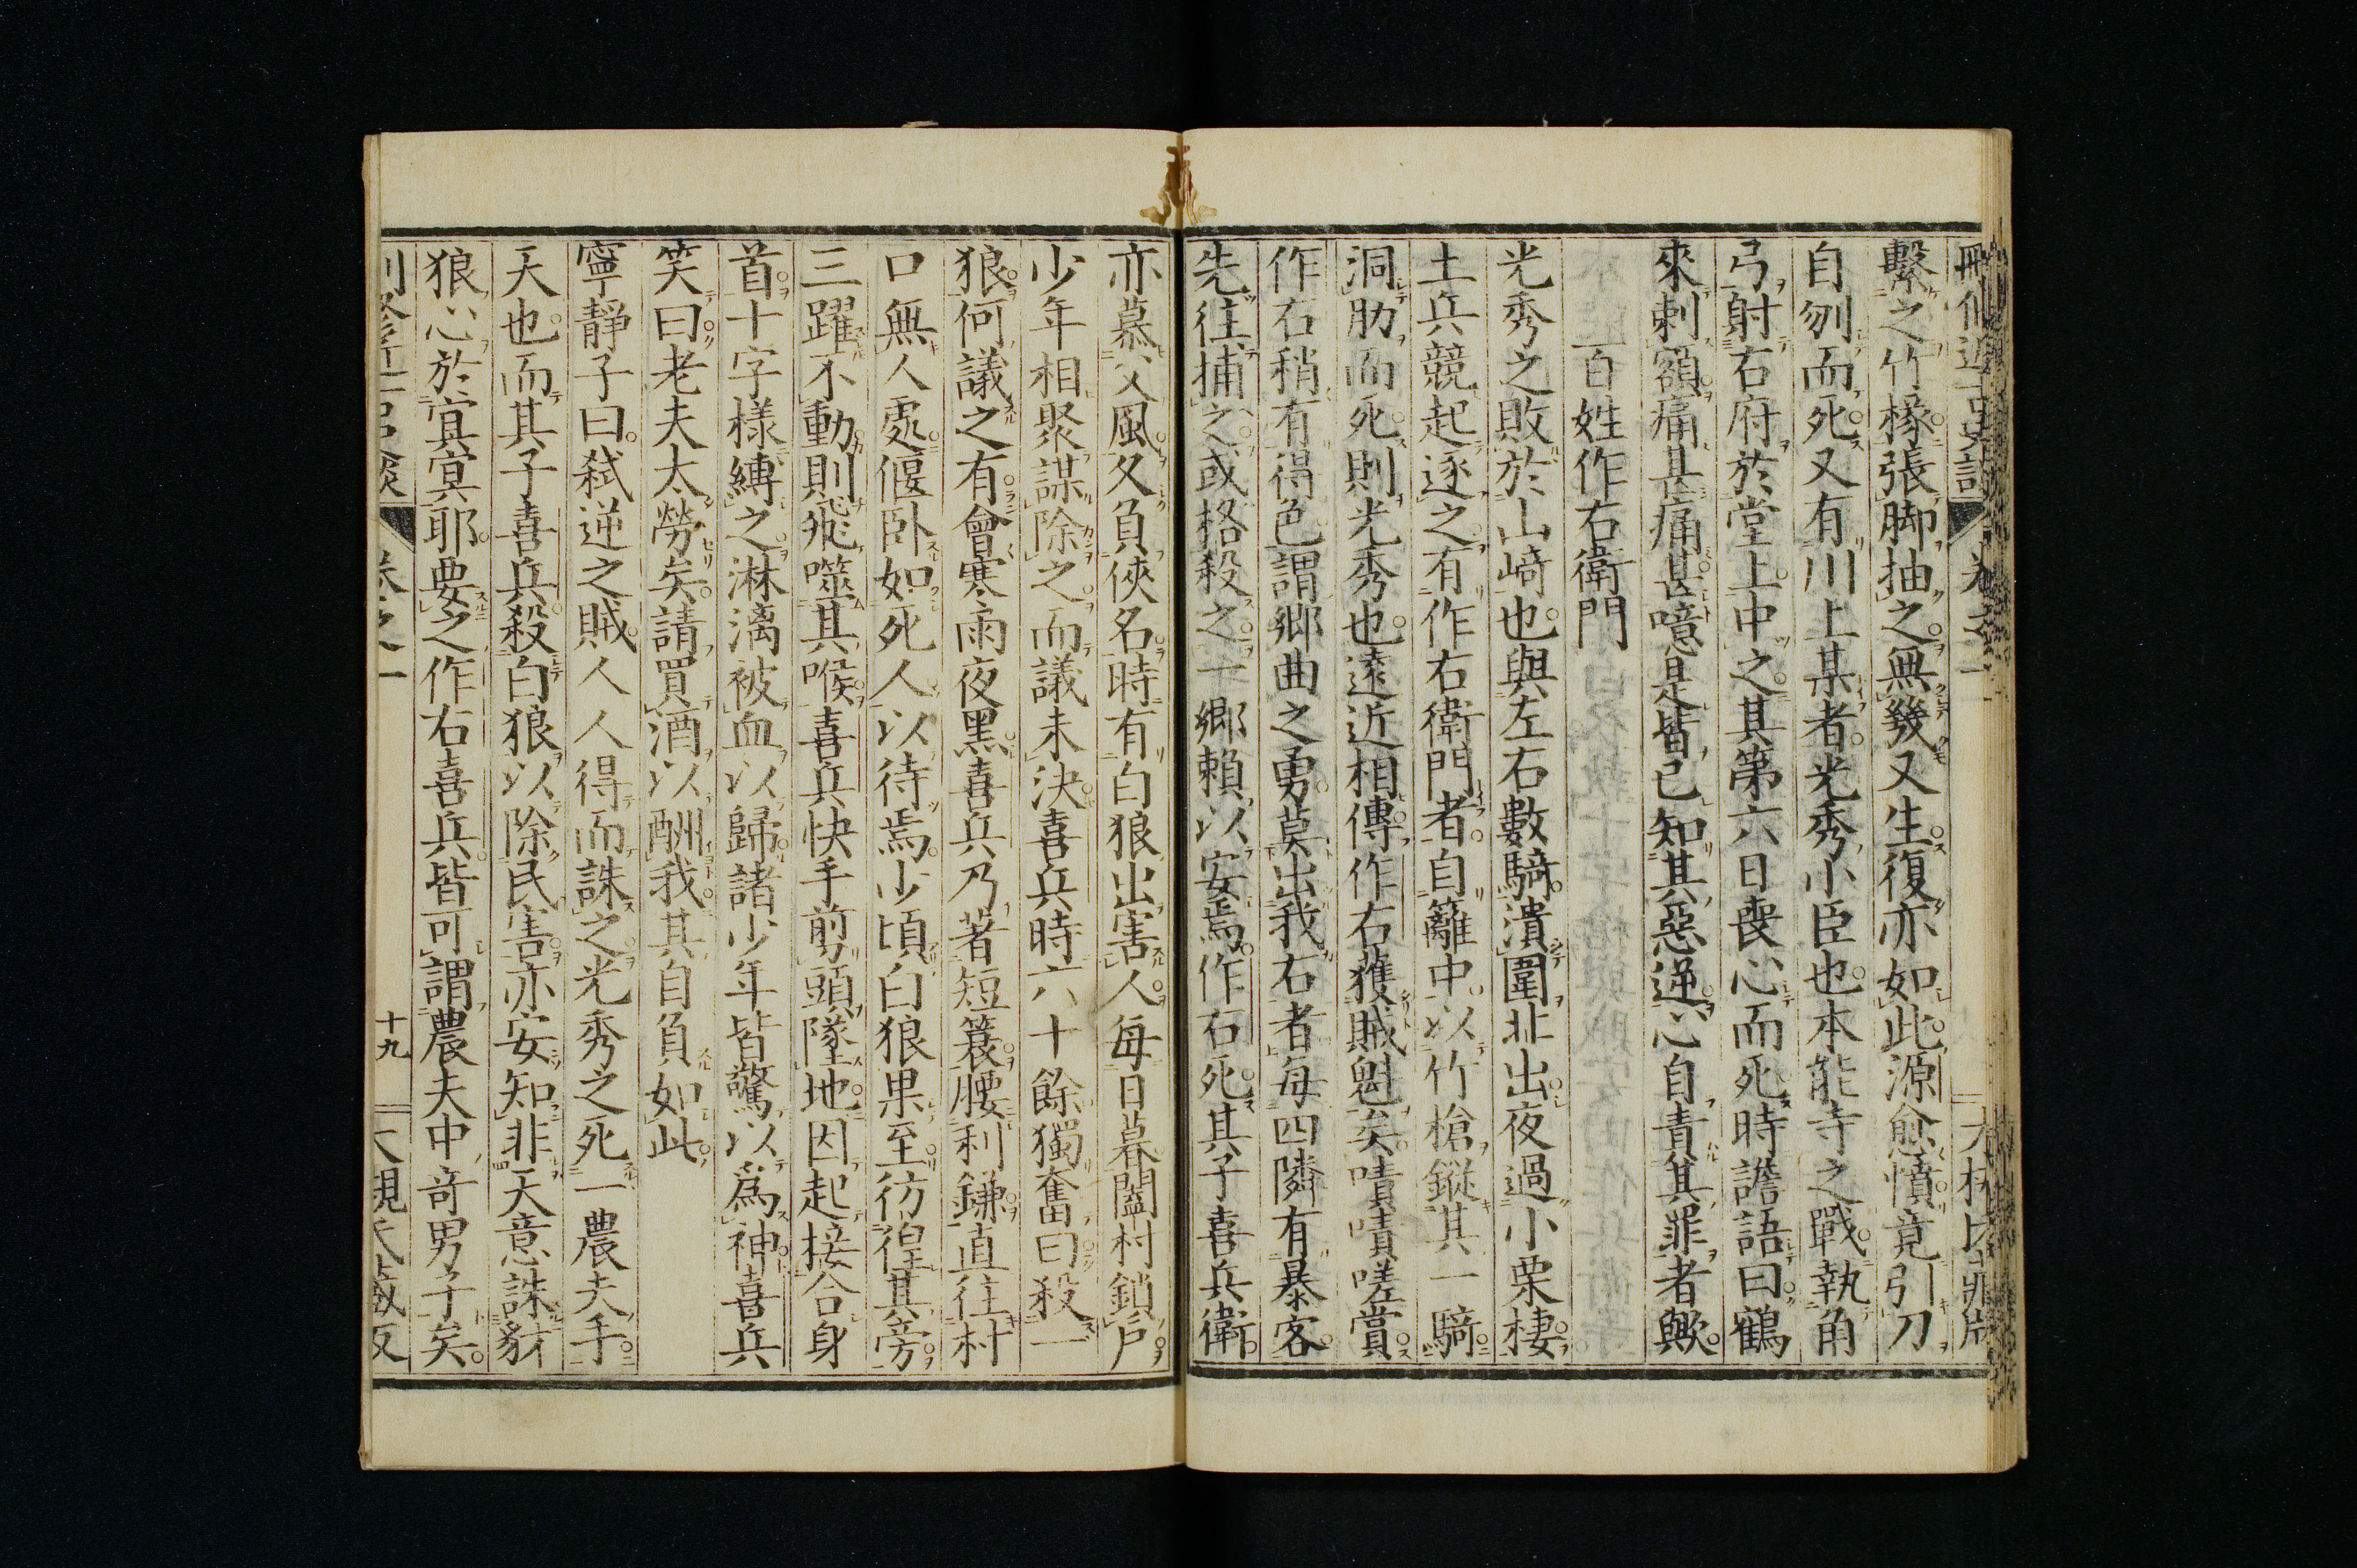 繫之竹椽張脚抽之無幾又生復亦如此源愈憤竟引刀
自刎而死又有川上某者光秀小臣也本能寺之戰執角
弓射右府於堂上中之其第六日喪心而死時譫語曰鶴
來刺額痛甚痛甚噫是皆已知其惡逆心自責其罪者歟
百姓作右衛門
光秀之敗於山﨑也與左右數騎潰圍北出夜過小栗棲
土兵競起逐之有作右衛門者自籬中以竹槍鏦其一騎
洞肋而死則光秀也遠近相傳作右獲賊魁矣嘖嘖嗟賞
作右稍有得色謂鄉曲之勇莫出我右者每四隣有暴客
先往捕之或格殺之一鄉賴以安焉作右死其子喜兵衛
亦慕父風久負俠名時有白狼出害人每日暮闔村鎖戶
少年相聚謀除之而議未決喜兵時六十餘獨奮曰殺一
狼何議之有會寒雨夜黑喜兵乃著短簑腰利鎌直往村
口無人處偃卧如死人以待焉少頃白狼果至彷徨其旁
三躍不動則飛噬其喉喜兵快手剪頭墜地因起接合身
首十字樣縛之淋漓被血以歸諸少年皆驚以爲神喜兵
笑曰老夫太勞矣請買酒以酬我其自負如此
寧靜子曰弒逆之賊人人得而誅之光秀之死一農夫手
天也而其子喜兵殺白狼以除民害亦安知非天意誅豺
狼心於冥冥耶要之作右喜兵皆可謂農夫中奇男子矣
十九